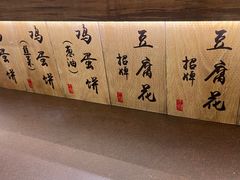 豆腐花
招牌
豆腐花
招牌
鸡蛋饼
(葱油)
鸡蛋饼
蛋饼